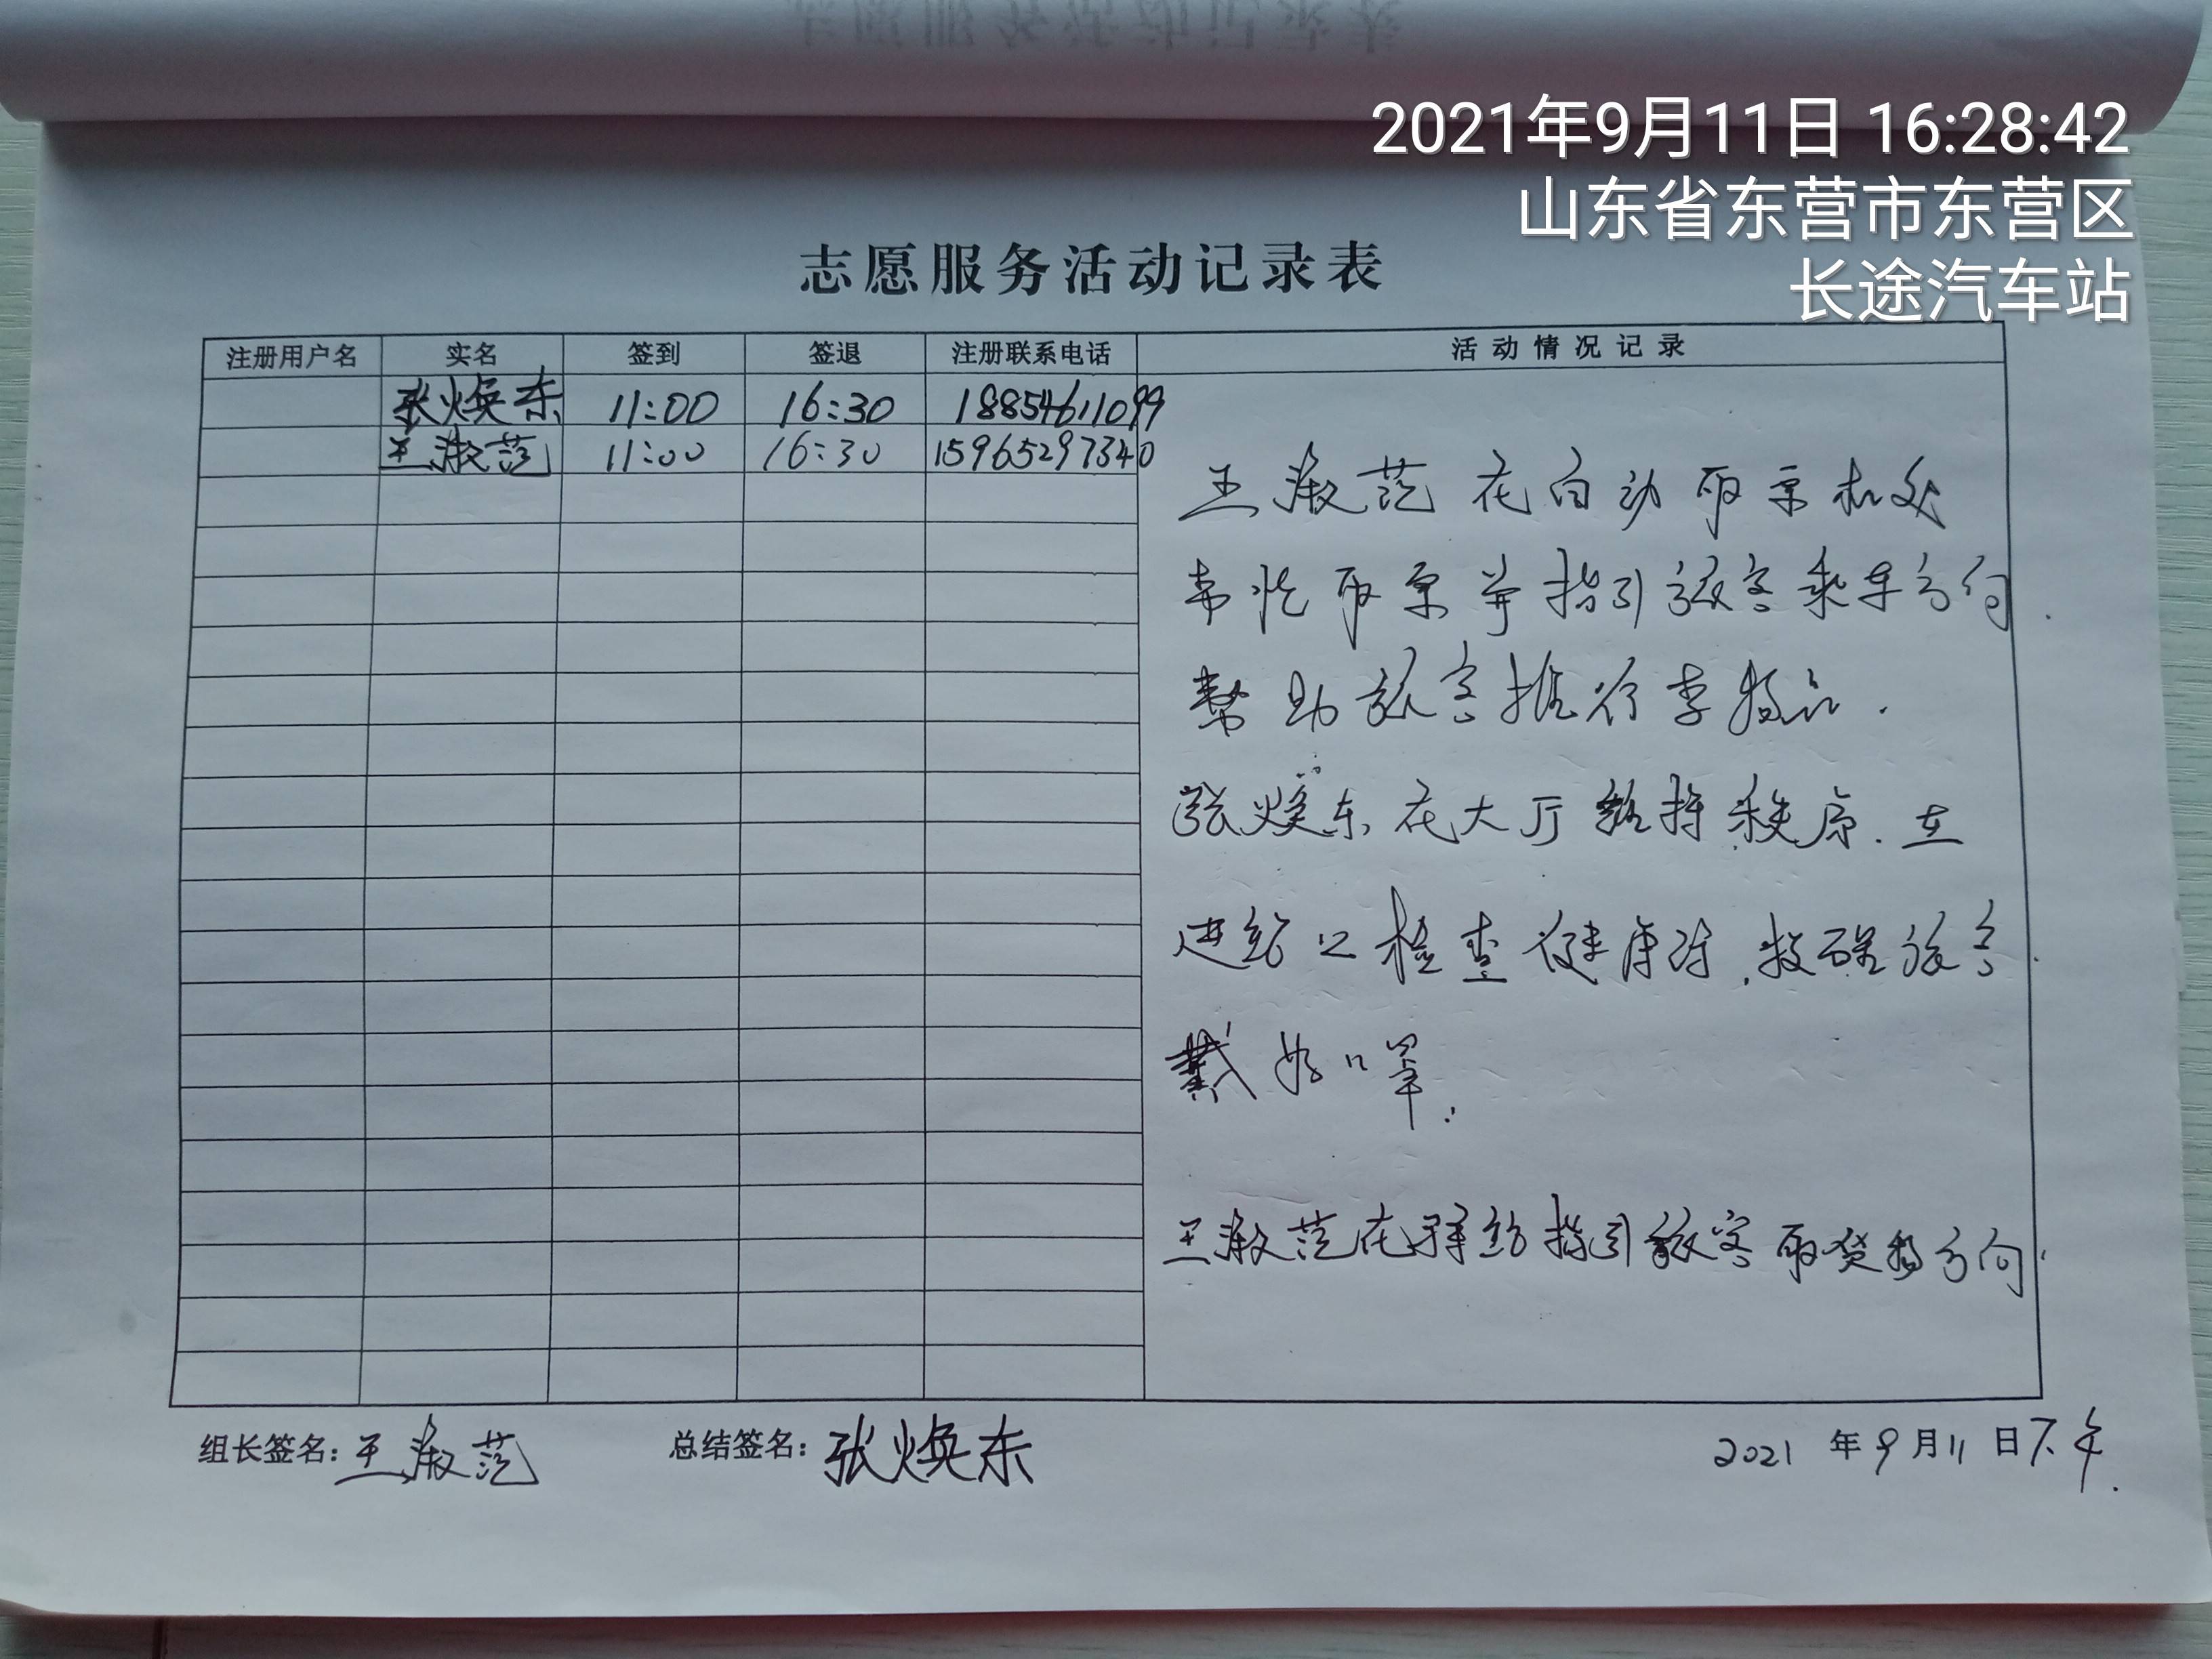 2021年9月11日 16:28:42
山东省东营市东营区
长途汽车站
志愿服务活动记录表
注册用户名 实名 签到 签退 注册联系电话 活动情况记录
张焕东 11:00 16:30 18854611099
王淑范 11:00 16:30 15965297340
王淑范在自动取票机处
帮忙取票并指引旅客乘车方向.
帮助旅客推行李物品.
张焕东在大厅维持秩序.在
进站口检查健康码,提醒旅客
戴好口罩.
王淑范在 指引旅客取货物方向.
组长签名:王淑范 总结签名:张焕东 2021年9月11日下午.